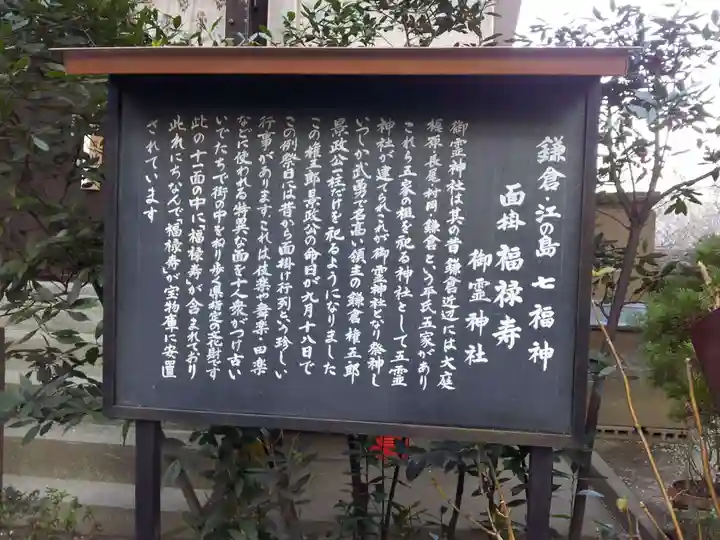 鎌倉・江の島 七福神
面掛 福禄寿
御霊神社
御霊神社は其の昔 鎌倉近辺には大庭
梶原・長尾・村岡・鎌倉という平氏五家があり
これら五家の祖を祀る神社として五霊
神社が建てられこれが御霊神社となり祭神も
いつしか武勇で名高い領主の鎌倉権五郎
景政公一柱だけを祀るようになりました
この権五郎景政公の命日が九月十八日で
この例祭日には昔から面掛け行列という珍しい
行事があります これは伎楽や舞楽・田楽
などに使われる特異な面を十人衆がつけ古い
いでたちで街の中を ねり歩く県指定の文化財です
此の十一面の中に「福禄寿」が含まれており
此れにちなんで「福禄寿」が宝物庫に安置
されています